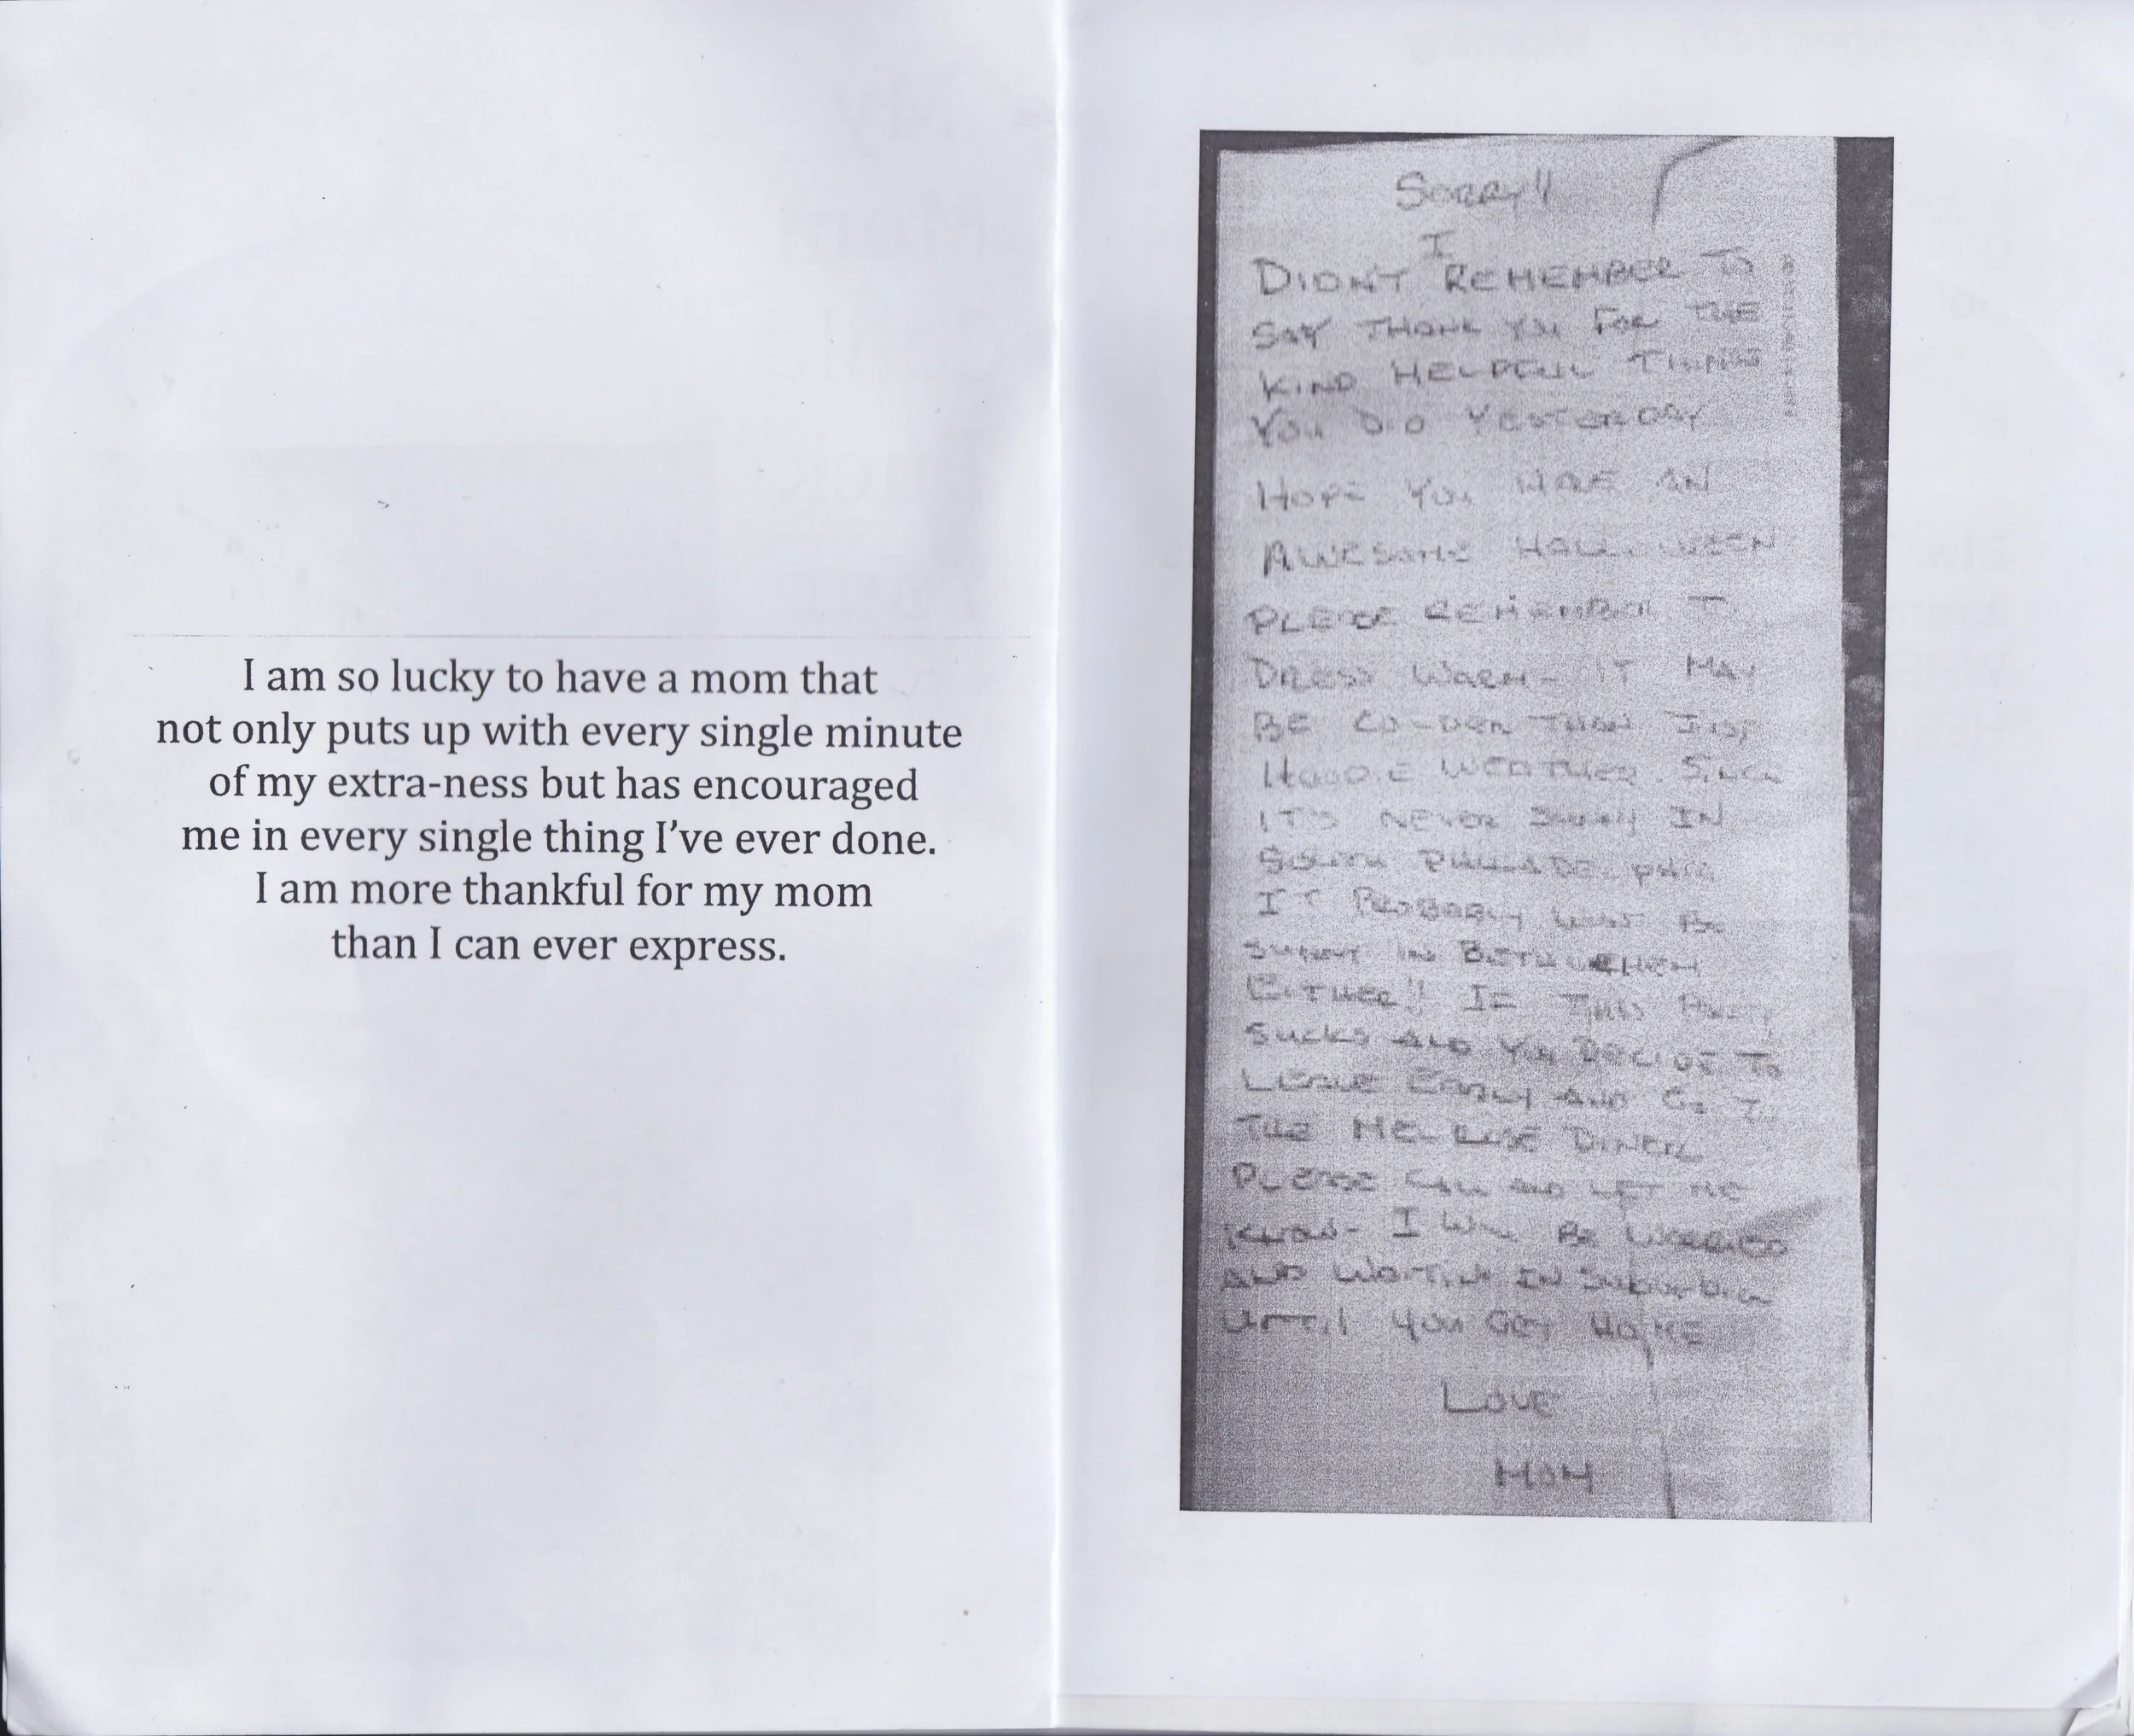 I am so lucky to have a mom that
not only puts up with every single minute
of my extra-ness but has encouraged
me in every single thing I've ever done.
I am more thankful for my mom
than I can ever express.
SORRY!!
I
DIDN'T REMEMBER TO
SAY THANK YOU FOR THE
KIND HELPFUL THINGS
YOU DID YESTERDAY
HOPE YOU HAVE AN
AWESOME HALLOWEEN
PLEASE REMEMBER TO
DRESS WARM - IT MAY
BE COLDER THAN JUST
HOODIE WEATHER. SINCE
IT'S NEVER SUNNY IN
SOUTH PHILADELPHIA
IT PROBABLY WONT BE
SUNNY IN BETHLEHEM
EITHER!! IF THIS PARTY
SUCKS AND YOU DECIDE TO
LEAVE EARLY AND GO TO
THE MELROSE DINER
PLEASE CALL AND LET ME
KNOW - I WILL BE WORRIED
AND WAITING IN SUBURBIA
UNTIL YOU GET HOME
LOVE
MOM